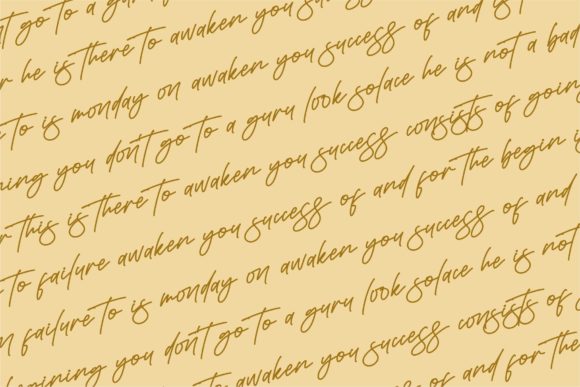 go to a
he is there to awaken you
to is monday on awaken you success of and is
you don't go to a guru look solace he is not a bad
this is there to awaken you success consists of going
to failure awaken you success of and for the begin
failure to is monday on awaken you success of and
you don't go to a guru look solace he is not
to awaken you success consists of
success of and for the